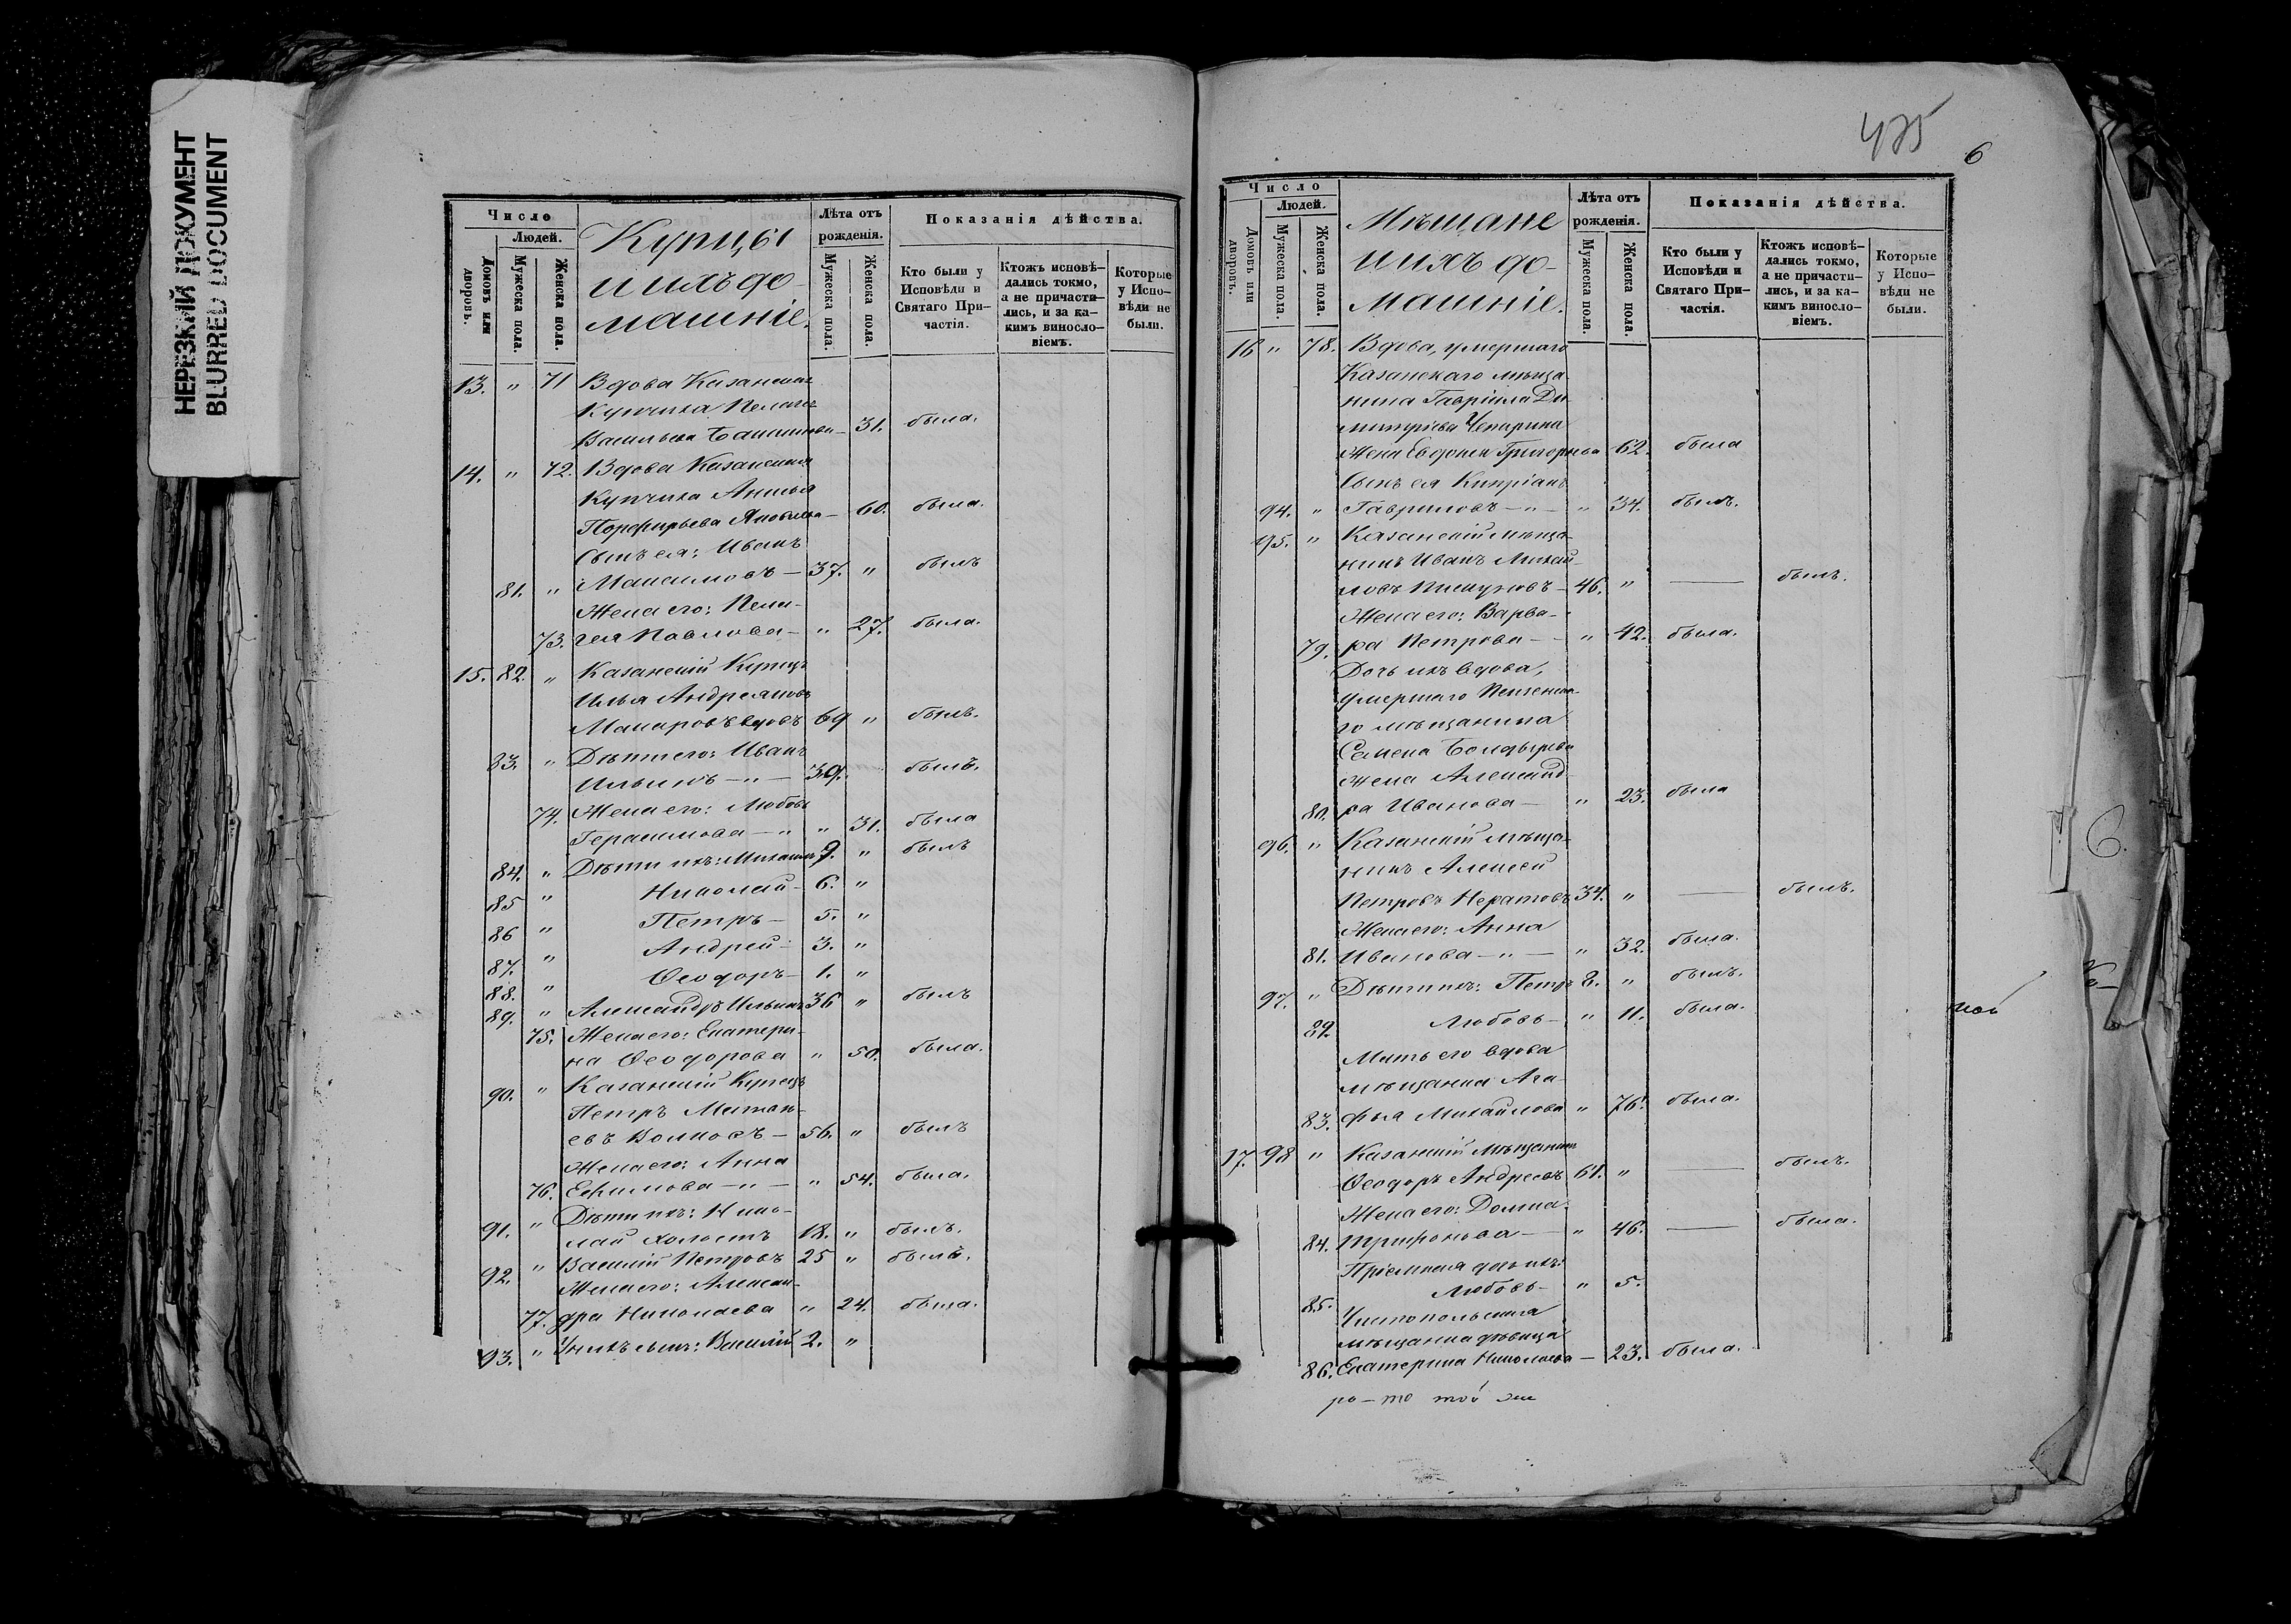 НЕРЕЗКИЙ ДОКУМЕНТ
BLURRED DOCUMENT
Число
Людей.
Домовъ или дворовъ.
Мужеска пола.
Женска пола.
Купцы
и ихъ до-
машніе.
Лѣта отъ рожденія.
Мужеска пола.
Женска пола.
Показанія дѣйства.
Кто были у Исповѣди и Святаго Причастія.
Ктожъ исповѣ-
дались токмо,
а не причасти-
лись, и за ка-
кимъ виносло-
віемъ.
Которые
у Испо-
вѣди не
были.
13. " 71 Вдова Казанская
Купчиха
Васильева — 31. была.
14. " 72. Вдова Казанская
Купчиха Анисья
Порфирьева — 60. была.
Сынъ ея: Иванъ
81. " Максимовъ — 37. " былъ
Жена его: Пела-
73. гея Павлова — " 27. была.
15. 82. " Казанскій Купецъ
Илья Андреяновъ
Макаровъ вдовъ 69 " былъ.
83. " Дѣти его: Иванъ
Ильинъ — " — 39. былъ.
74. Жена его: Любовь
Герасимова — " " 31. была
84. " Дѣти ихъ: Михаилъ 9. " былъ
85 " Николай — 6. "
86 " Петръ — 5. "
87. " Андрей — 3. "
88. " Ѳеодоръ — 1. "
89. " Александръ Ильинъ 36 " былъ
75. Жена его: Екатери-
на Ѳеодорова " 50. была.
90. " Казанскій Купецъ
Петръ Матвѣ-
евъ Волковъ — 56. " былъ
Жена его: Анна
76. Ефимова — " — " 54. была.
91. " Дѣти ихъ: Нико-
лай холостъ 18. " былъ.
92. " Василій Петровъ 25 " былъ.
Жена его: Алексан-
77. дра Николаева " 24. была.
93. " У нихъ сынъ: Василій 2. "
475
6
Число
Людей.
Домовъ или дворовъ.
Мужеска пола.
Женска пола.
Мѣщане
и ихъ до-
машніе.
Лѣта отъ рожденія.
Мужеска пола.
Женска пола.
Показанія дѣйства.
Кто были у
Исповѣди и
Святаго При-
частія.
Ктожъ исповѣ-
дались токмо,
а не причасти-
лись, и за ка-
кимъ виносло-
віемъ.
Которые
у Испо-
вѣди не
были.
16 " 78. Вдова, умершаго
Казанскаго мѣща-
нина Гавріила Ди-
митріева
жена Евдокія Григорьева 62. была
Сынъ ея Кипріанъ
94. " Гавриловъ — " — " 34. былъ.
95. " Казанскій мѣща-
нинъ Иванъ Михай-
ловъ — 46. " — былъ.
Жена его: Варва-
79. ра Петрова — " 42. была.
Дочь ихъ вдова,
умершаго
го мѣщанина
Семена Болдырева
жена Александ-
80. ра Иванова — " 23. была
96. " Казанскій мѣща-
нинъ Алексей
Петровъ Нератовъ 34. " — былъ.
Жена его: Анна
81. Иванова — " — " 32. была.
97. " Дѣти ихъ: Петръ 8. " былъ.
82. Любовь — " 11. была.
Мать его вдова
мѣщанка Ага-
83. фья Михайлова " 76. была.
17. 98 " Казанскій Мѣщанинъ
Ѳеодоръ Андреевъ 61. " — былъ.
Жена его: Домна
84. Трифонова — " 46. — была.
Пріемная дочь ихъ:
85. Любовь — " 5.
Чистопольская
мѣщанка дѣвица
86. Екатерина Николаева — 23. была.